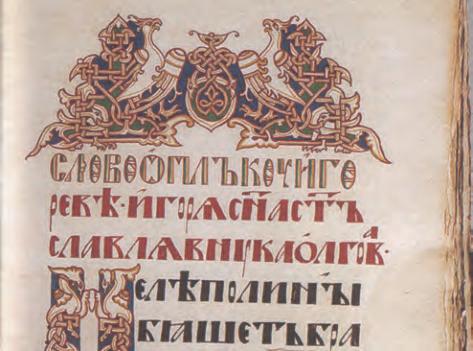 СЛОВОѺПЛЪКОУИГО
РЕВѢ·ИГОРѦСН҃АСТ҃Ъ
СЛАВЛѦВНУКАОЛГОВА·
НЕЛѢПОЛИНЪІ
БІАШЕТЪБРА